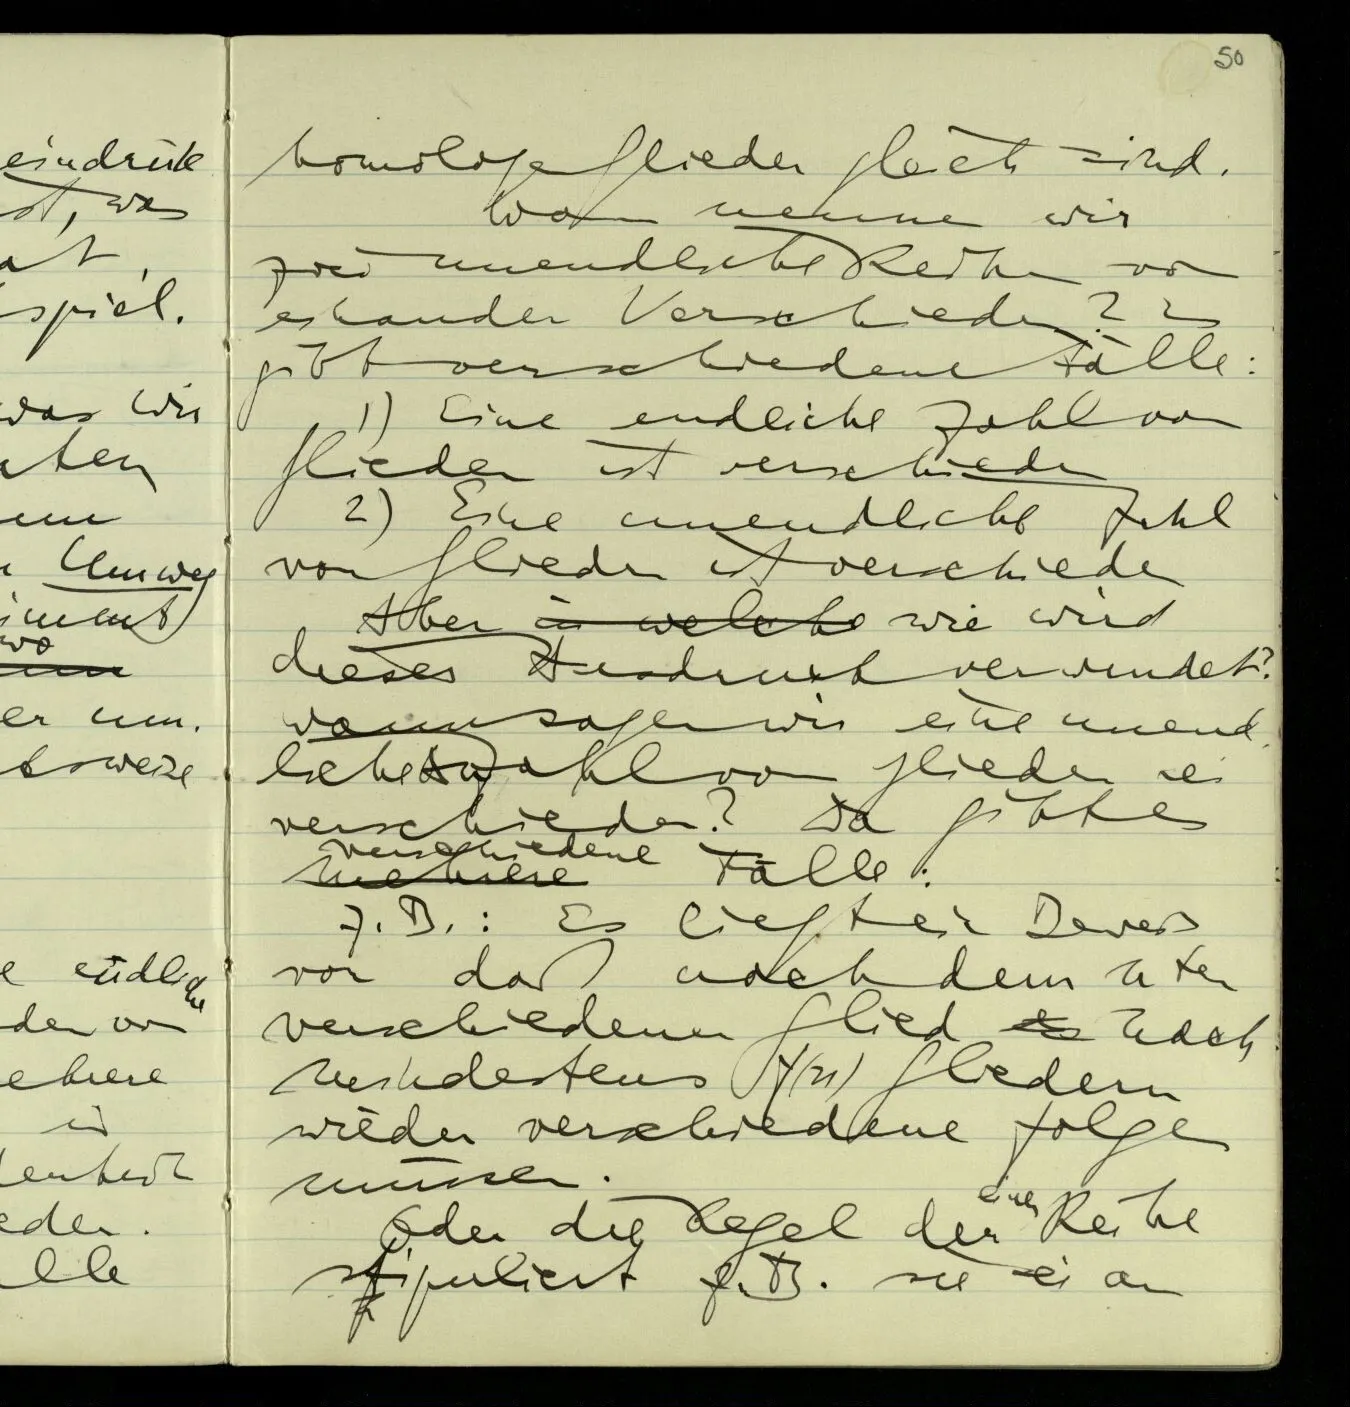 50
eindrücke
st, was
at,
spiel.
was wir
Umweg
wo
er um.
sweise
e endliche
den von
ehrere
eder.
lle
homologe Glieder gleich sind.
Wann nennen wir
zwei unendliche Reihen von
einander Verschieden? Es
gibt verschiedene Fälle:
1) Eine endliche Zahl von
Gliedern ist verschieden
2) Eine unendliche Zahl
von Gliedern ist verschieden
Aber in welche wie wird
dieser Ausdruck verwendet?
wann sagen wir eine unend
liche Anzahl von Gliedern sei
verschieden? Da gibt es
verschiedene
mehrere Fälle:
z.B.: Es liegt ein Beweis
vor daß nach dem n ten
verschiedenen Glied es nach
mindestens f(n) Gliedern
wieder verschiedene folgen
müssen.
einen
Oder die Regel der Reihe
stipuliert z.B. sie sei an